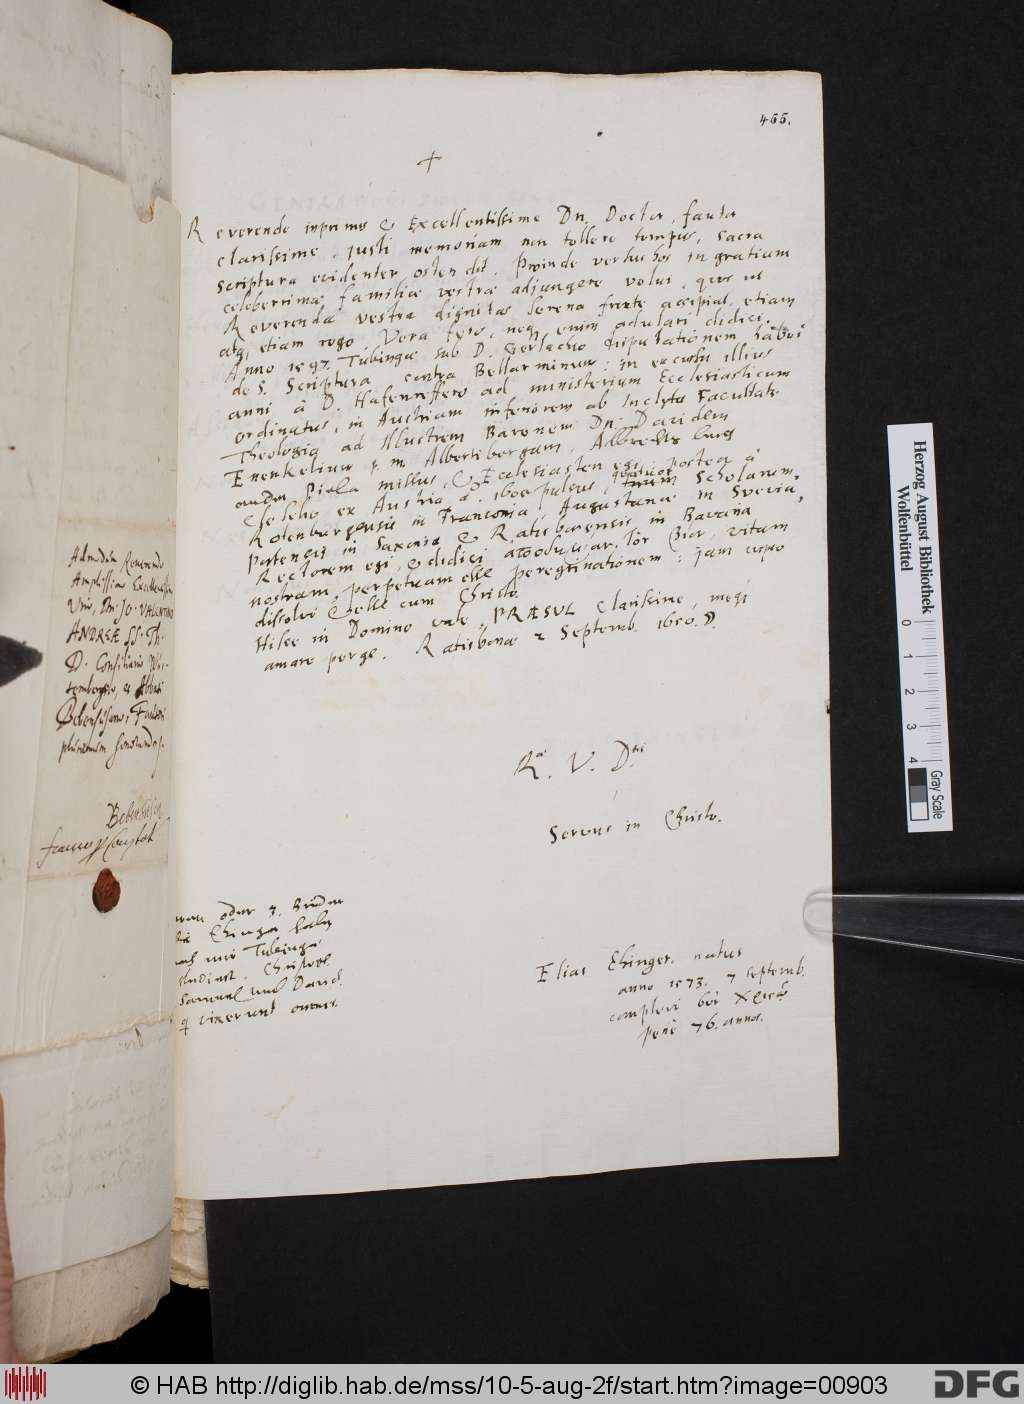 466.
+
Reverende inprimis & Excellentissime Dn. Doctor, fautor
clarissime, justi memoriam non tollere tempus, sacra
scriptura evidenter ostendit. Proinde verbis hos in gratiam
celeberrimæ familiæ vestræ adjungere volui, quos ut
Reverenda vestra dignitas serena fronte accipiat, etiam
atq; etiam rogo. Vera fero, neq; enim adulari didici.
Anno 1597. Tubingæ sub D. Gerlachio disputationem habui
de S. Scriptura contra Bellarminum: in excursu illius
anni à D. Hafenreffero ad ministerium Ecclesiasticum
ordinatus, in Austriam inferiorem ab Inclyta Facultate
Theologica ad Illustrem Baronem Dn. Davidem
Enenkelium p. m. Albertibergam, Albrechtsburg
an der Piela missus, & Ecclesiasten egi, postea à
Cheleho ex Austria a. 1600 pulsus, quatuor Scholarum
Rotenburgensis in Franconia, Augustanæ in Suevia,
Portensis in Saxonia & Ratisbonensis in Bavaria
Rectorem egi, & didici
nostram, perpetuam esse peregrinationem: jam cupio
dissolvi & esse cum Christo.
Hisce in Domino vale, PRÆSUL clarissime, meq;
amare perge. Ratisbonæ 2 Septemb. 1650.
Ræ. V. Dnis
Servus in Christo.
Elias Ehinger. natus
anno 1573. 7 Septemb.
complevi
penè 76. annos.
oder 3. Brüder
Ehinger
mir Tubingæ
studiert. Christoff.
Samuel und David.
qui vixerunt
Admodum Reverendo
Amplissimo Excellentissimo
Viro, Dn. Jo. VALENTINO
ANDREÆ SS. Th.
D. Consiliario Wir-
tembergico, & Abbati
Bebenhusano, Fautori
plurimum honorando.
Bebenhusen
franco
Herzog August Bibliothek
Wolfenbüttel
0 1 2 3 4
Gray Scale
© HAB http://diglib.hab.de/mss/10-5-aug-2f/start.htm?image=00903
DFG